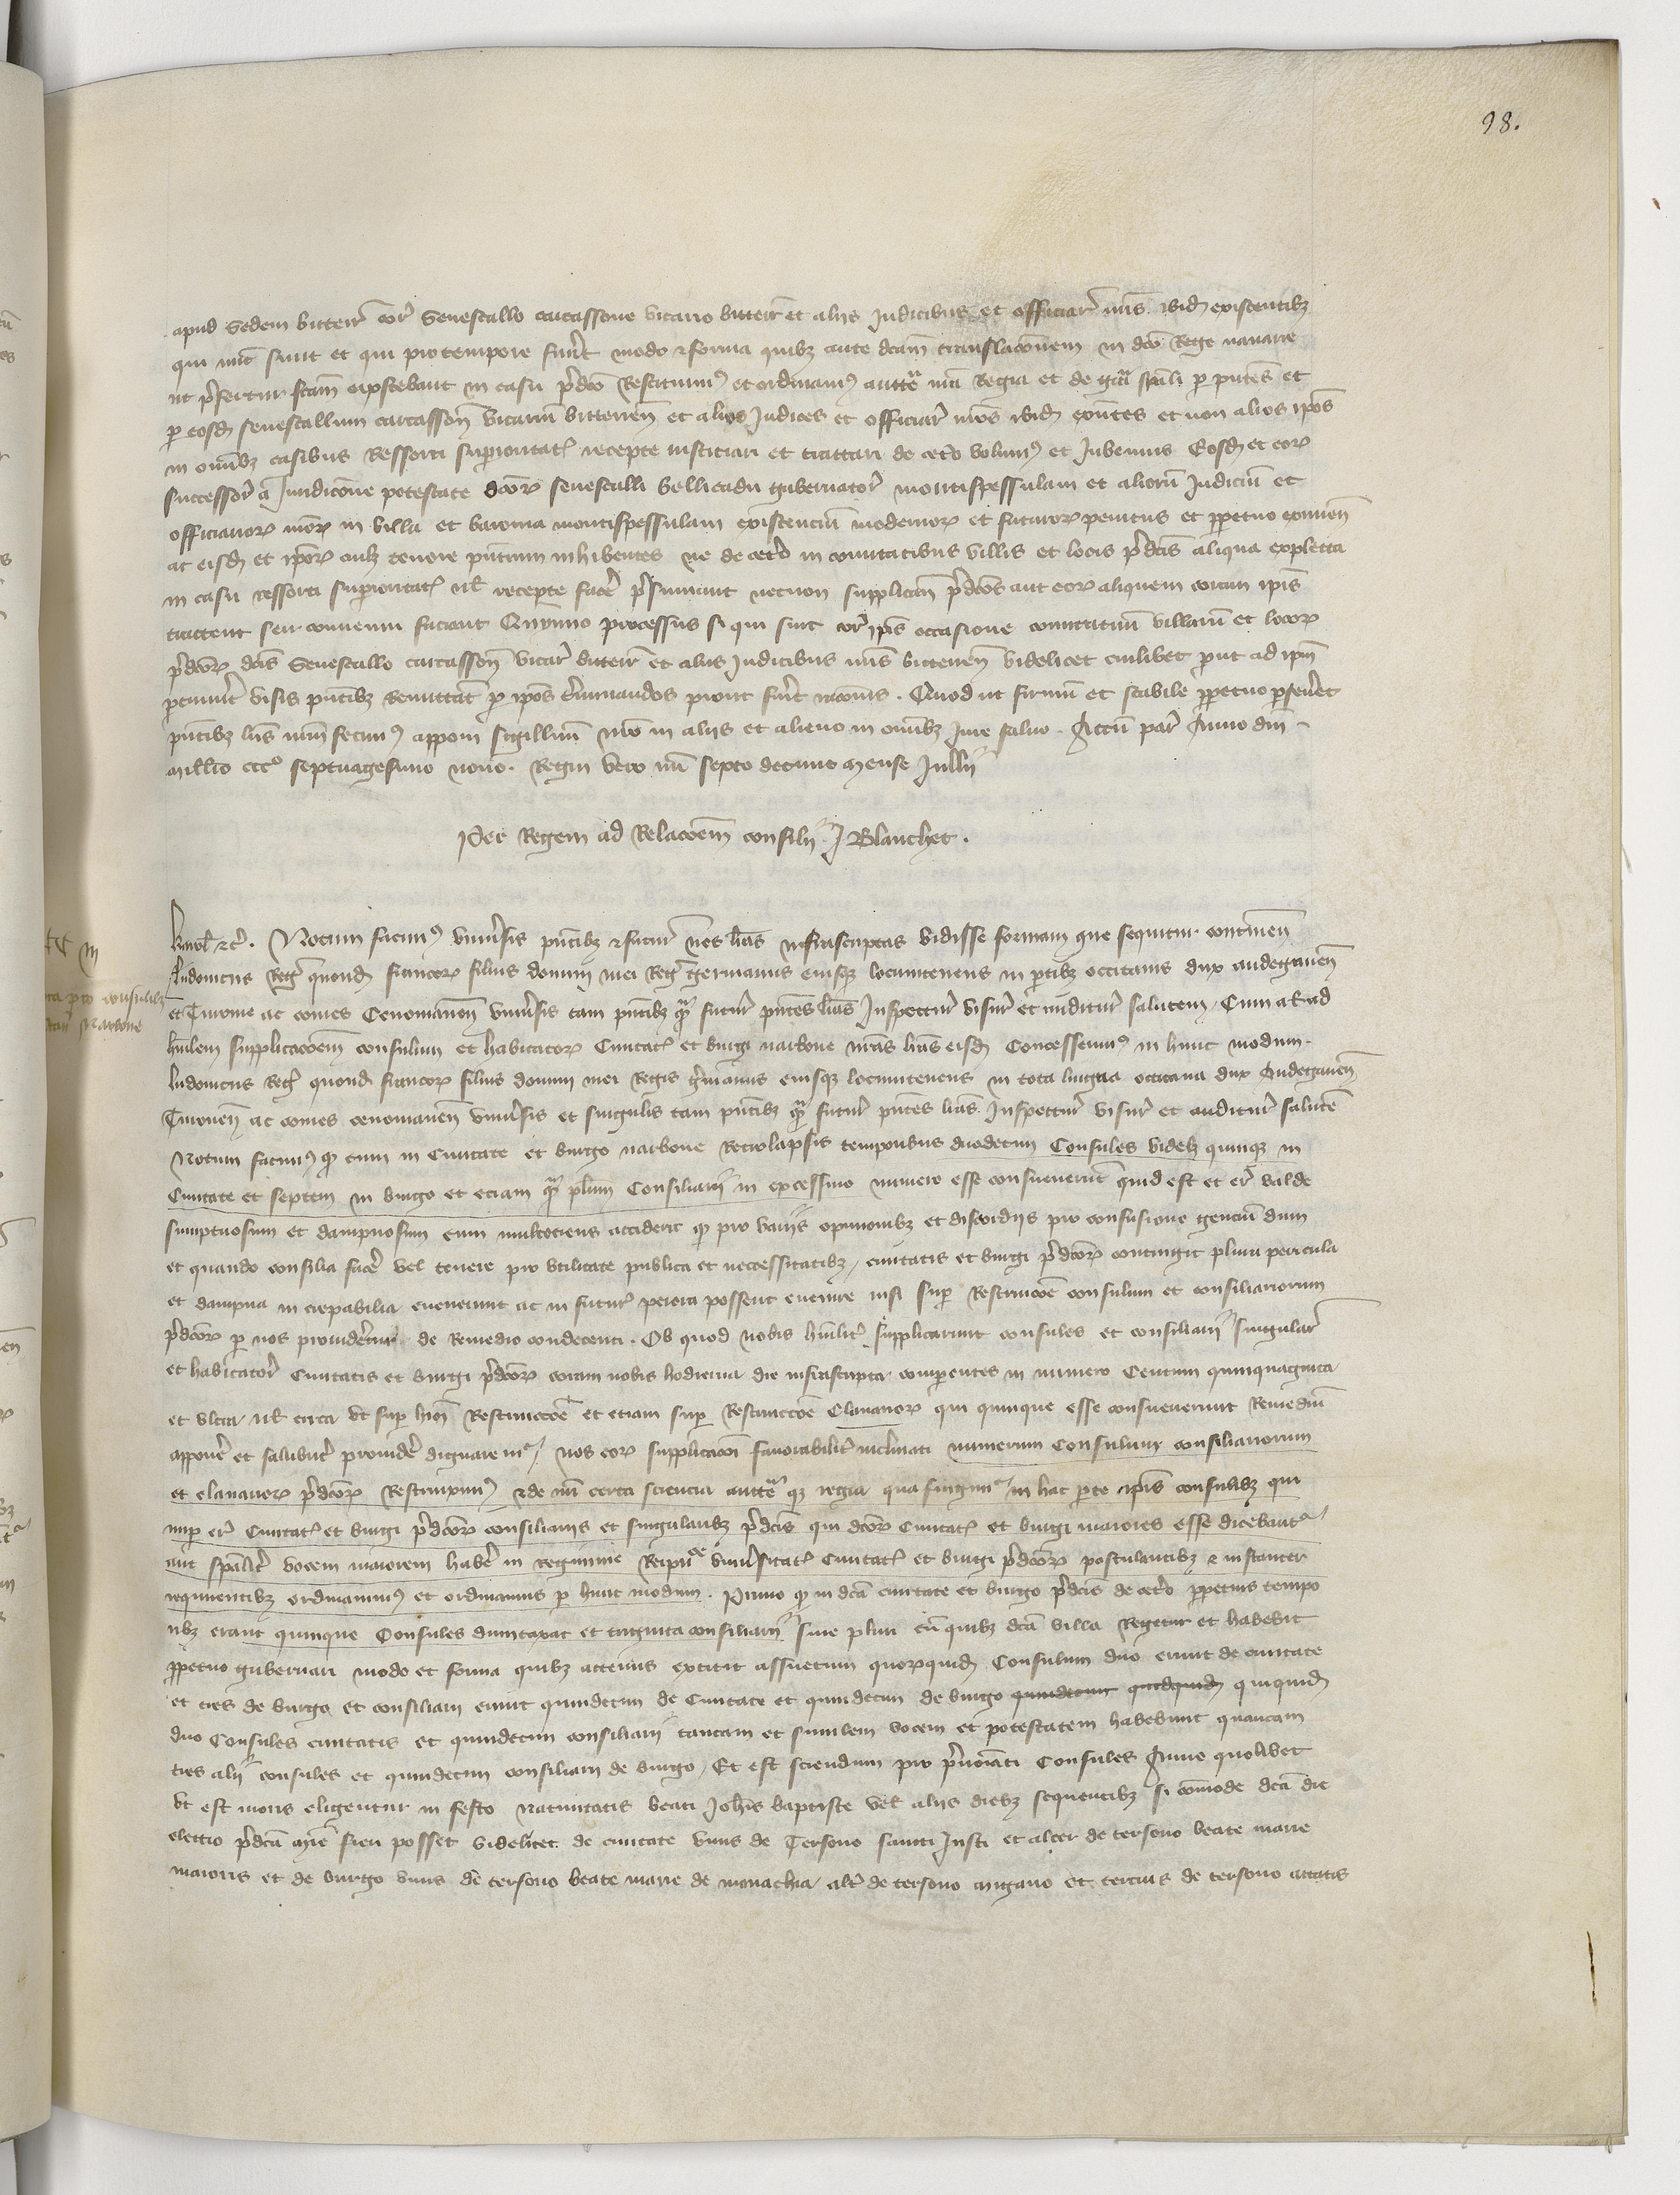 98.
apud Sedem bitteir̄ cor̄ Senescallo carcassone vicario bitteir̄ et alijs Judicibus et officiar̄ nr̄is ibid̄ existentibꝫ
qui nūc sunt et qui pro tempore fuer̄t modo et forma quibꝫ ante dcām translacōnem in dcō Rege nauarre
ut pr̄fertur fcām in casu pr̄dcō Restituimꝰ et ordinamꝰ aucttē nr̄a Regia et de grā spāli per pn̄tes et
per eosd̄ senescallum carcassoñ vicariū bitterreñ et alios Judices et officiar̄ nr̄os ibid̄ exn̄tes et non alios ip̄os
in om̄ibꝫ casibus Ressorti superioritatꝭ recepte iusticiari et tractari de ceto volumꝰ et Jubemus Eosd̄ et eorꝫ
successor̄ a Juridicōne potestate dcōrꝫ senescalli bellicadri gubernator̄ montispessulani et aliorū Judicū et
officiariorꝫ nr̄orꝫ in villa et baronia montispessulani existenciū modernorꝫ et futurorꝫ penitus et perpetuo eximeñ
ac eisd̄ et ip̄orꝫ cuilꝫ tenore pn̄tium inhibentes ne de ceto in comitatibus villis et locis pr̄dcīs aliqua expletta
in casu ressorti superioritatꝭ ul̄ recepte facer̄ pr̄sumant necnon supplicañ pr̄dcōs aut eorꝫ aliquem coram ip̄is
tractent seu conueniri faciant Quinimo processus si qui sint cor̄ ip̄is occasione comitatuū villarū et locorꝫ
pr̄dcōrꝫ dcīs Senescallo carcassoñ vicar̄ bitteir̄ et alijs Judicibus nr̄is bitterreñ videlicet cuilibet prout ad ip̄m
pertinuit visis pn̄tibꝫ Remittāt per ip̄os terminandos prout fuer̄t racōnis. Quod ut firmū et stabile perpetuo perseueret
pn̄tibꝫ lr̄is nr̄um fecimꝰ apponi sigillum nr̄o in alijs et alieno in om̄ibꝫ iure saluo. Actū par̄ Anno dn̄i
millio ccc° septuagesimo nono. Regni vero nr̄i sexto decimo mense Jullij
Per Regem ad Relacōem consilij J Blanchet.
pro consulibꝫ
Narbone
Karol̄ etc̄. Notum facimꝰ vniuersis pn̄tibꝫ et futur̄ nos lr̄as infrascriptas vidisse formam que sequitur contineñ
Ludouicus Regꝭ quond̄ francorꝫ filius domini mei Regꝭ germanus eiusqꝫ locumtenens in partibꝫ occitanis dux andegaueñ
et Turonie ac comes Cenomaneñ vniuersis tam pn̄tibꝫ quā futur̄ pn̄tes lr̄as Inspectur̄ visur̄ et auditur̄ salutem. Cum alias ad
hūilem supplicacōem consulum et habitatorꝫ Ciuitatꝭ et burgi narbone nr̄as lr̄as eisd̄ Concesserimꝰ in hunc modum.
Ludouicus Regꝭ quond̄ francorꝫ filius domini mei Regis germanus eiusqꝫ locumtenens in tota lingua occitana dux Andegaueñ
Turoneñ ac comes cenomaneñ vniuersis et singulis tam pn̄tibꝫ quā futur̄ pn̄tes lr̄as Inspectur̄ visur̄ et auditur̄ salutē
Notum facimꝰ qꝫ cum in Ciuitate et burgo narbone Retrolapsis temporibus duodecim Consules videlꝫ quinqꝫ in
Ciuitate et septem in burgo et eciam quā plurimi Consiliarij in excessiuo numero esse consueuerunt quid est et er̄ valde
sumptuosum et dampnosum cum multociens acciderit qꝫ pro varijs opinionibꝫ et discordijs pro confusione genciū dum
et quando consilia facer̄ vel tenere pro vtilitate publica et neccessitatibꝫ ciuitatis et burgi pr̄dcōrꝫ contingit plura pericula
et dampna increpabilia euenerunt ac in futurꝭ peiora possent euenire nisi super Restrinccōe consulum et consiliariorum
pr̄dcōrꝫ per nos prouideretur de Remedio condecenti. Ob quod nobis hūilitꝭ supplicarunt consules et consiliarij singular̄
et habitator̄ Ciuitatis et burgi pr̄dcōrꝫ coram nobis hodierna die infrascripta comparentes in numero Centum quinquaginta
et vltra ul̄ circa vt super hm̄oi Restrinccōe et eciam super Restrinccōe Clauariorꝫ qui quinque esse consueuerunt Remediū
apponer̄ et salubritꝭ prouider̄ dignaremur / nos eorꝫ supplicacōi fauorabilitꝭ inclinati numerum Consulum consiliariorum
et clauariorꝫ pr̄dcōrꝫ Restrinximꝰ et de nr̄a certa sciencia aucttē qꝫ regia qua fungimur in hac parte ip̄is consulibꝫ qui
nup er̄ Ciuitatꝭ et burgi pr̄dcōrꝫ consiliarijs et singularibꝫ pr̄dcīs qui dcōrꝫ Ciuitatꝭ et burgi maiores esse dicebantur
aut spālitꝭ vocem maiorem haber̄ in regimine Reipu͞ce vniuersitatꝭ Ciuitatꝭ et burgi pr̄dcōrꝫ postulantibꝫ et instanter
requirentibꝫ ordinauimꝰ et ordinamus per hunc modum. Primo qꝫ in dcā ciuitate et burgo pr̄dcīs de ceto perpetuis tempo
ribꝫ erunt quinque Consules dumtaxat et triginta consiliarij siue pluri cū quibꝫ dcā villa Regetur et habebit
perpetuo gubernari modo et forma quibꝫ actenus extitit assuetum quorꝫquid̄ Consulum duo erunt de ciuitate
et tres de burgo et consiliarij erunt quindecim de Ciuitate et quindecim de burgo quindecim quiquid̄ quiquid̄
duo Consules ciuitatis et quindecim consiliarij tantam et similem vocem et potestatem habebunt quantam
tres alij consules et quindecim consiliarij de burgo / Et est sciendum pro pr̄noiāti Consules Anno quolibet
vt est moris eligentur in festo Natiuitatis beati Joh̄is baptiste vel alijs diebꝫ sequentibꝫ si cōmode dcā die
electio pr̄dcā fieri posset videlicet de ciuitate vnus de Tersono sancti Justi et alter de tersono beate marie
maioris et de burgo vnus de tersono beate marie de monachia altꝭ de tersono et tercius de tersono